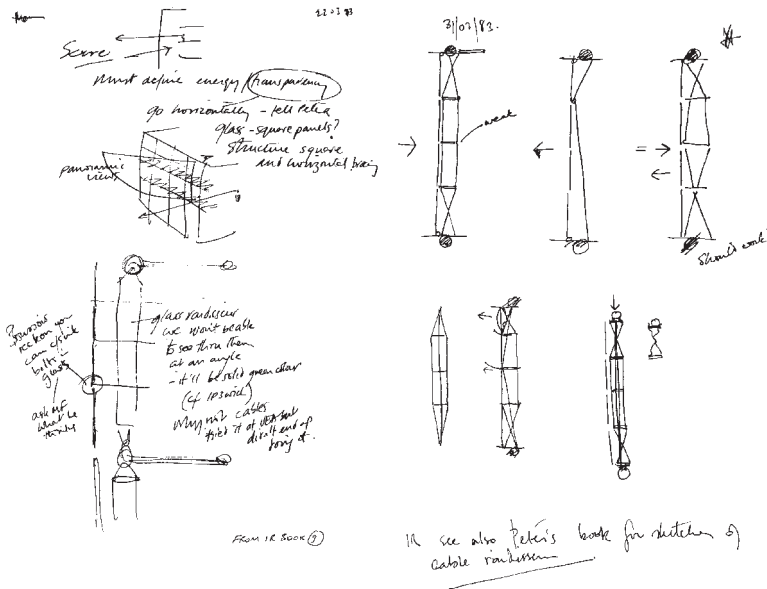 22 03 83
Serre
Must define energy/transparency
go horizontally - tell Petra
glass - square panels?
Structure square
and horizontal bracing
panoramic
views
glass raidisseur
we won't be able
to see thru them
at an angle
- it'll be solid green glass
(cf Ipswich)
Why not cables
tried it at
end up
doing it.
reckon you
can c/sink
bolts in
glass
ask
what he
thinks
FROM IR BOOK 9
31/03/83.
weak
=
Should work!
IR see also Peter's book for sketches of
cable raidisseurs